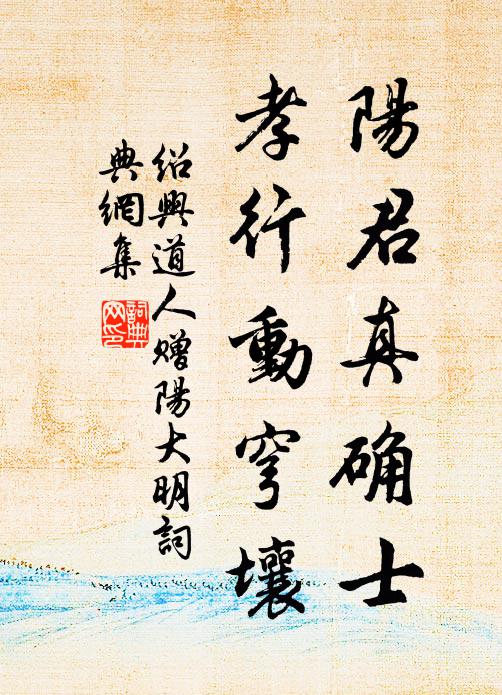 陽君真确士
孝行動穹壤
紹興道人贈陽大明詞
典網集
詞典网印